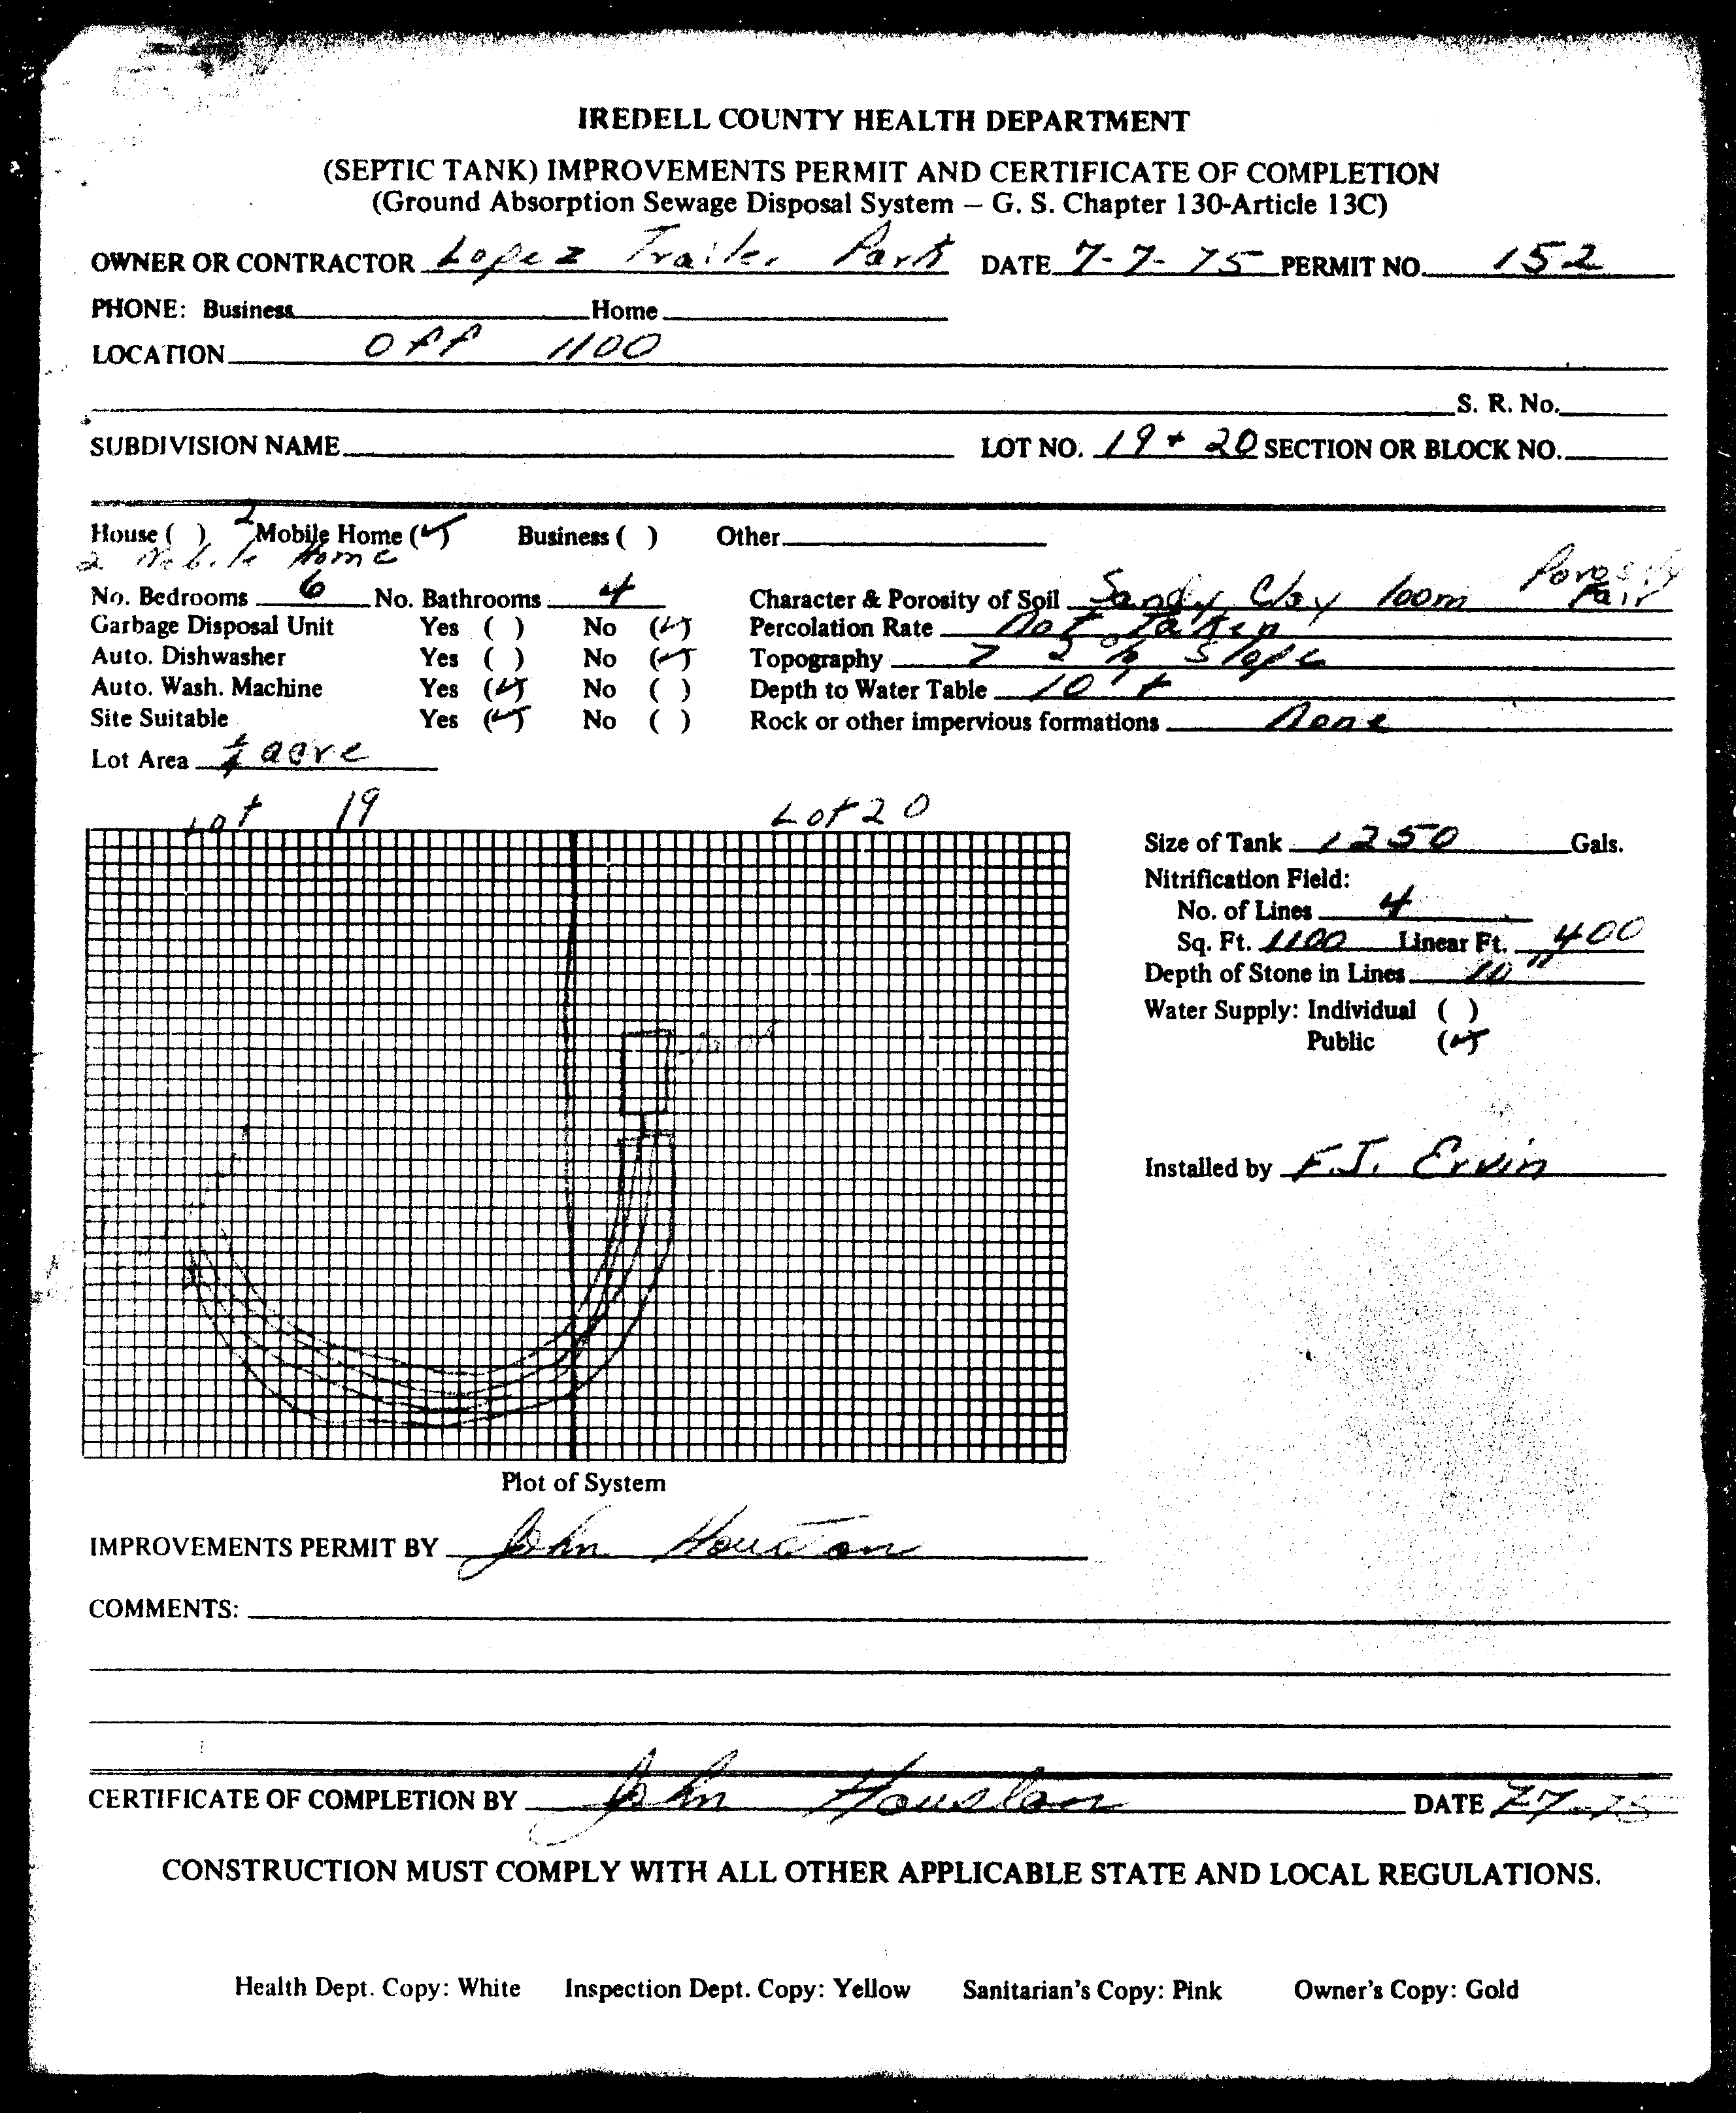 IREDELL COUNTY HEALTH DEPARTMENT
(SEPTIC TANK) IMPROVEMENTS PERMIT AND CERTIFICATE OF COMPLETION
(Ground Absorption Sewage Disposal System — G. S. Chapter 130-Article 13C)
OWNER OR CONTRACTOR Lopez Trailer Park DATE 7-7-75 PERMIT NO. 152
PHONE: Business Home
LOCATION Off 1100
S. R. No.
SUBDIVISION NAME LOT NO. 19 + 20 SECTION OR BLOCK NO.
House ( ) 2 Mobile Home (✓) Business ( ) Other
2 Mobile Home
No. Bedrooms 6 No. Bathrooms 4 Character & Porosity of Soil Sandy Clay loom Porosity Fair
Garbage Disposal Unit Yes ( ) No (✓) Percolation Rate Not Taken
Auto. Dishwasher Yes ( ) No (✓) Topography 2% Slope
Auto. Wash. Machine Yes (✓) No ( ) Depth to Water Table 10' +
Site Suitable Yes (✓) No ( ) Rock or other impervious formations None
Lot Area acre
Lot 19 Lot 20
Size of Tank 1250 Gals.
Nitrification Field:
No. of Lines 4
Sq. Ft. 1100 Linear Ft. 400
Depth of Stone in Lines 10"
Water Supply: Individual ( )
Public (✓)
Installed by F.J. Ervin
Plot of System
IMPROVEMENTS PERMIT BY John Houston
COMMENTS:
CERTIFICATE OF COMPLETION BY John Houston DATE 7-7-75
CONSTRUCTION MUST COMPLY WITH ALL OTHER APPLICABLE STATE AND LOCAL REGULATIONS.
Health Dept. Copy: White Inspection Dept. Copy: Yellow Sanitarian's Copy: Pink Owner's Copy: Gold